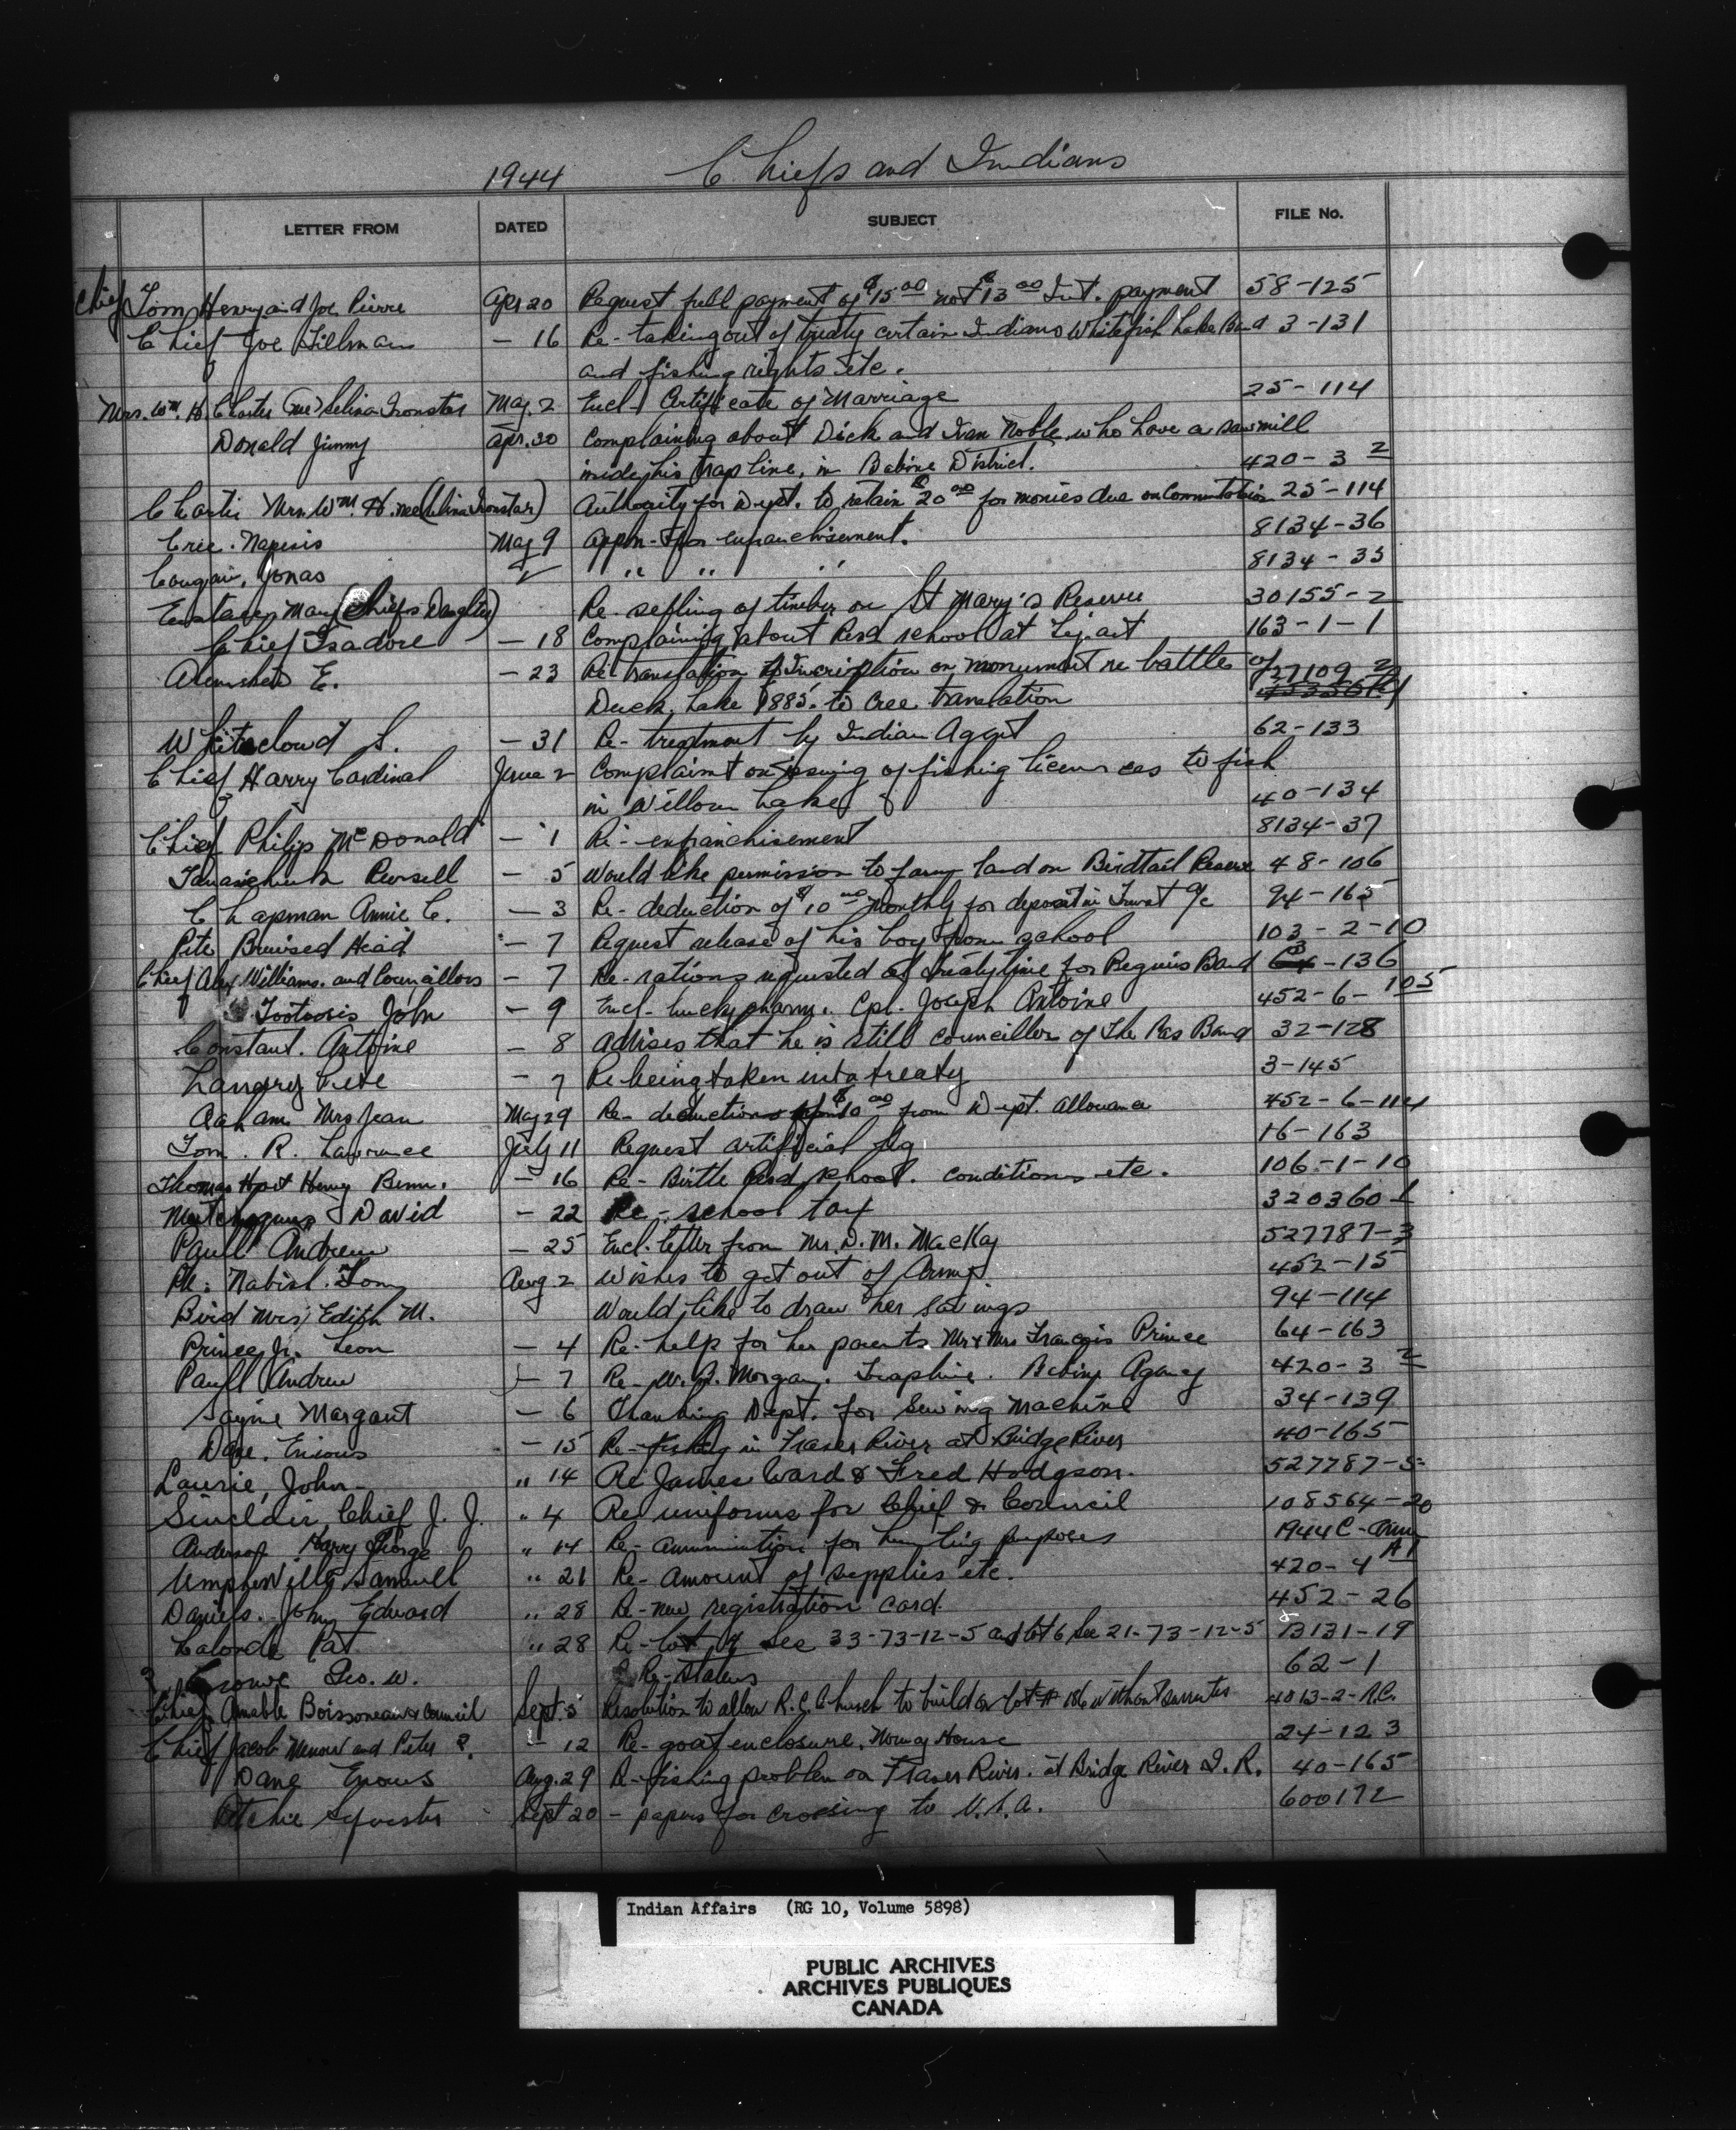 1944 Chiefs and Indians
LETTER FROM DATED SUBJECT FILE No.
Chief Tom Henry and Joe Pierre Apr 20 Request full payment of $15.00 not $13.00 Int. payment 58-125
Chief Joe Hillman — 16 Re- taking out of treaty certain Indians Whitefish Lake Band 3-131
and fishing rights etc.
Mrs. Wm. H. Charter (nee) Selina Ironstar May 2 Encl- Certificate of Marriage 25-114
Donald Jimmy Apr. 20 Complaining about Dick and Ivan Noble who have a sawmill
inside his trap line, in Babine District. 420-3 2
Mrs. Wm. H. nee (Selina Ironstar) Authority for Dept. to retain $20.00 for monies due on Commutation 25-114
Cree. Napesis May 9 Appln- for enfranchisement. 8134-36
Cougar, Jonas " " " 8134-35
Mary (Chiefs Daughter) Re- selling of timber on St Mary's Reserve 30155-2
Chief Isadore — 18 Complaining about Resd school at Lejac 163-1-1
E. — 23 Re- translation of Inscription on monument re battle of 27109-2
Duck Lake 1885. to Cree translation
Whitecloud S. — 31 Re- treatment by Indian Agent 62-133
Chief Harry Cardinal June 2 Complaint on issuing of fishing licences to fish
in Willow Lake 40-134
Chief Philip McDonald — 1 Re- enfranchisement 8134-37
— 5 Would like permission to farm land on Birdtail Reserve 48-106
Chapman Annie C. — 3 Re- deduction of $10.00 monthly for deposit in Trust a/c 94-165
Pete Bruised Head — 7 Request release of his boy from school 103-2-10
Chief Alex Williams. and Councillors — 7 Re- rations requested at treaty time for Peguis Band 63-136
Tootoosis John — 9 Encl- lucky charm. Cpl. Joseph Antoine 452-6-105
Constant. Antoine — 8 Advises that he is still councillor of The Pas Band 32-128
Pete — 7 Re being taken into treaty 3-145
Aaham Mrs Jean May 29 Re- deduction $10.00 from Dept. allowance 452-6-114
Tom. R. Lawrence July 11 Request artificial leg 16-163
Thomas Hart Henry Benn. — 16 Re- Birtle Resd school. conditions etc. 106-1-10
David — 22 Re- school tax 320360-1
Paull Andrew — 25 Encl. letter from Mr. D. M. MacKay 527787-3
Pte. Nabish. Tom Aug 2 Wishes to get out of Army 452-15
Bird Mrs Edith M. Would like to draw her savings 94-114
Prince Jr. Leon — 4 Re- help for her parents Mr & Mrs François Prince 64-163
Paull Andrew — 7 Re- W. J. Morgan. Trapline. Babine Agency 420-3 2
Sayne Margaret — 6 Thanking Dept. for Sewing Machine 34-139
— 15 Re- fishing in Fraser River at Bridge River 40-165
Laurie, John- " 14 Re James Ward & Fred Hodgson. 527787-5
Sinclair, Chief J. J. " 4 Re uniforms for Chief & Council 108564-20
Anderson Harry George " 14 Re- ammunition for hunting purposes 1944 C-Amm
Umpherville Samuell " 21 Re- amount of supplies etc. 420-4 A1
Daniels. John Edward " 28 Re- new registration card. 452-26
Lalonde Pat " 28 Re- lot 4 Sec 33-73-12-5 and lot 6 Sec 21-73-12-5 73131-19
Crowe Geo. W. Re- status 62-1
Chief Amable Boissoneau & Council Sept. 5 Resolution to allow R. C. Church to build on lot # 186 without surrender 4013-2-R.C.
Chief Jacob Menow and Peter ?. — 12 Re- goat enclosure. Norway House 24-123
Aug. 29 Re- fishing problem on Fraser River. at Bridge River I. R. 40-165
Ritchie Sylvester Sept 20 - papers for crossing to U.S.A. 600172
Indian Affairs (RG 10, Volume 5898)
PUBLIC ARCHIVES
ARCHIVES PUBLIQUES
CANADA